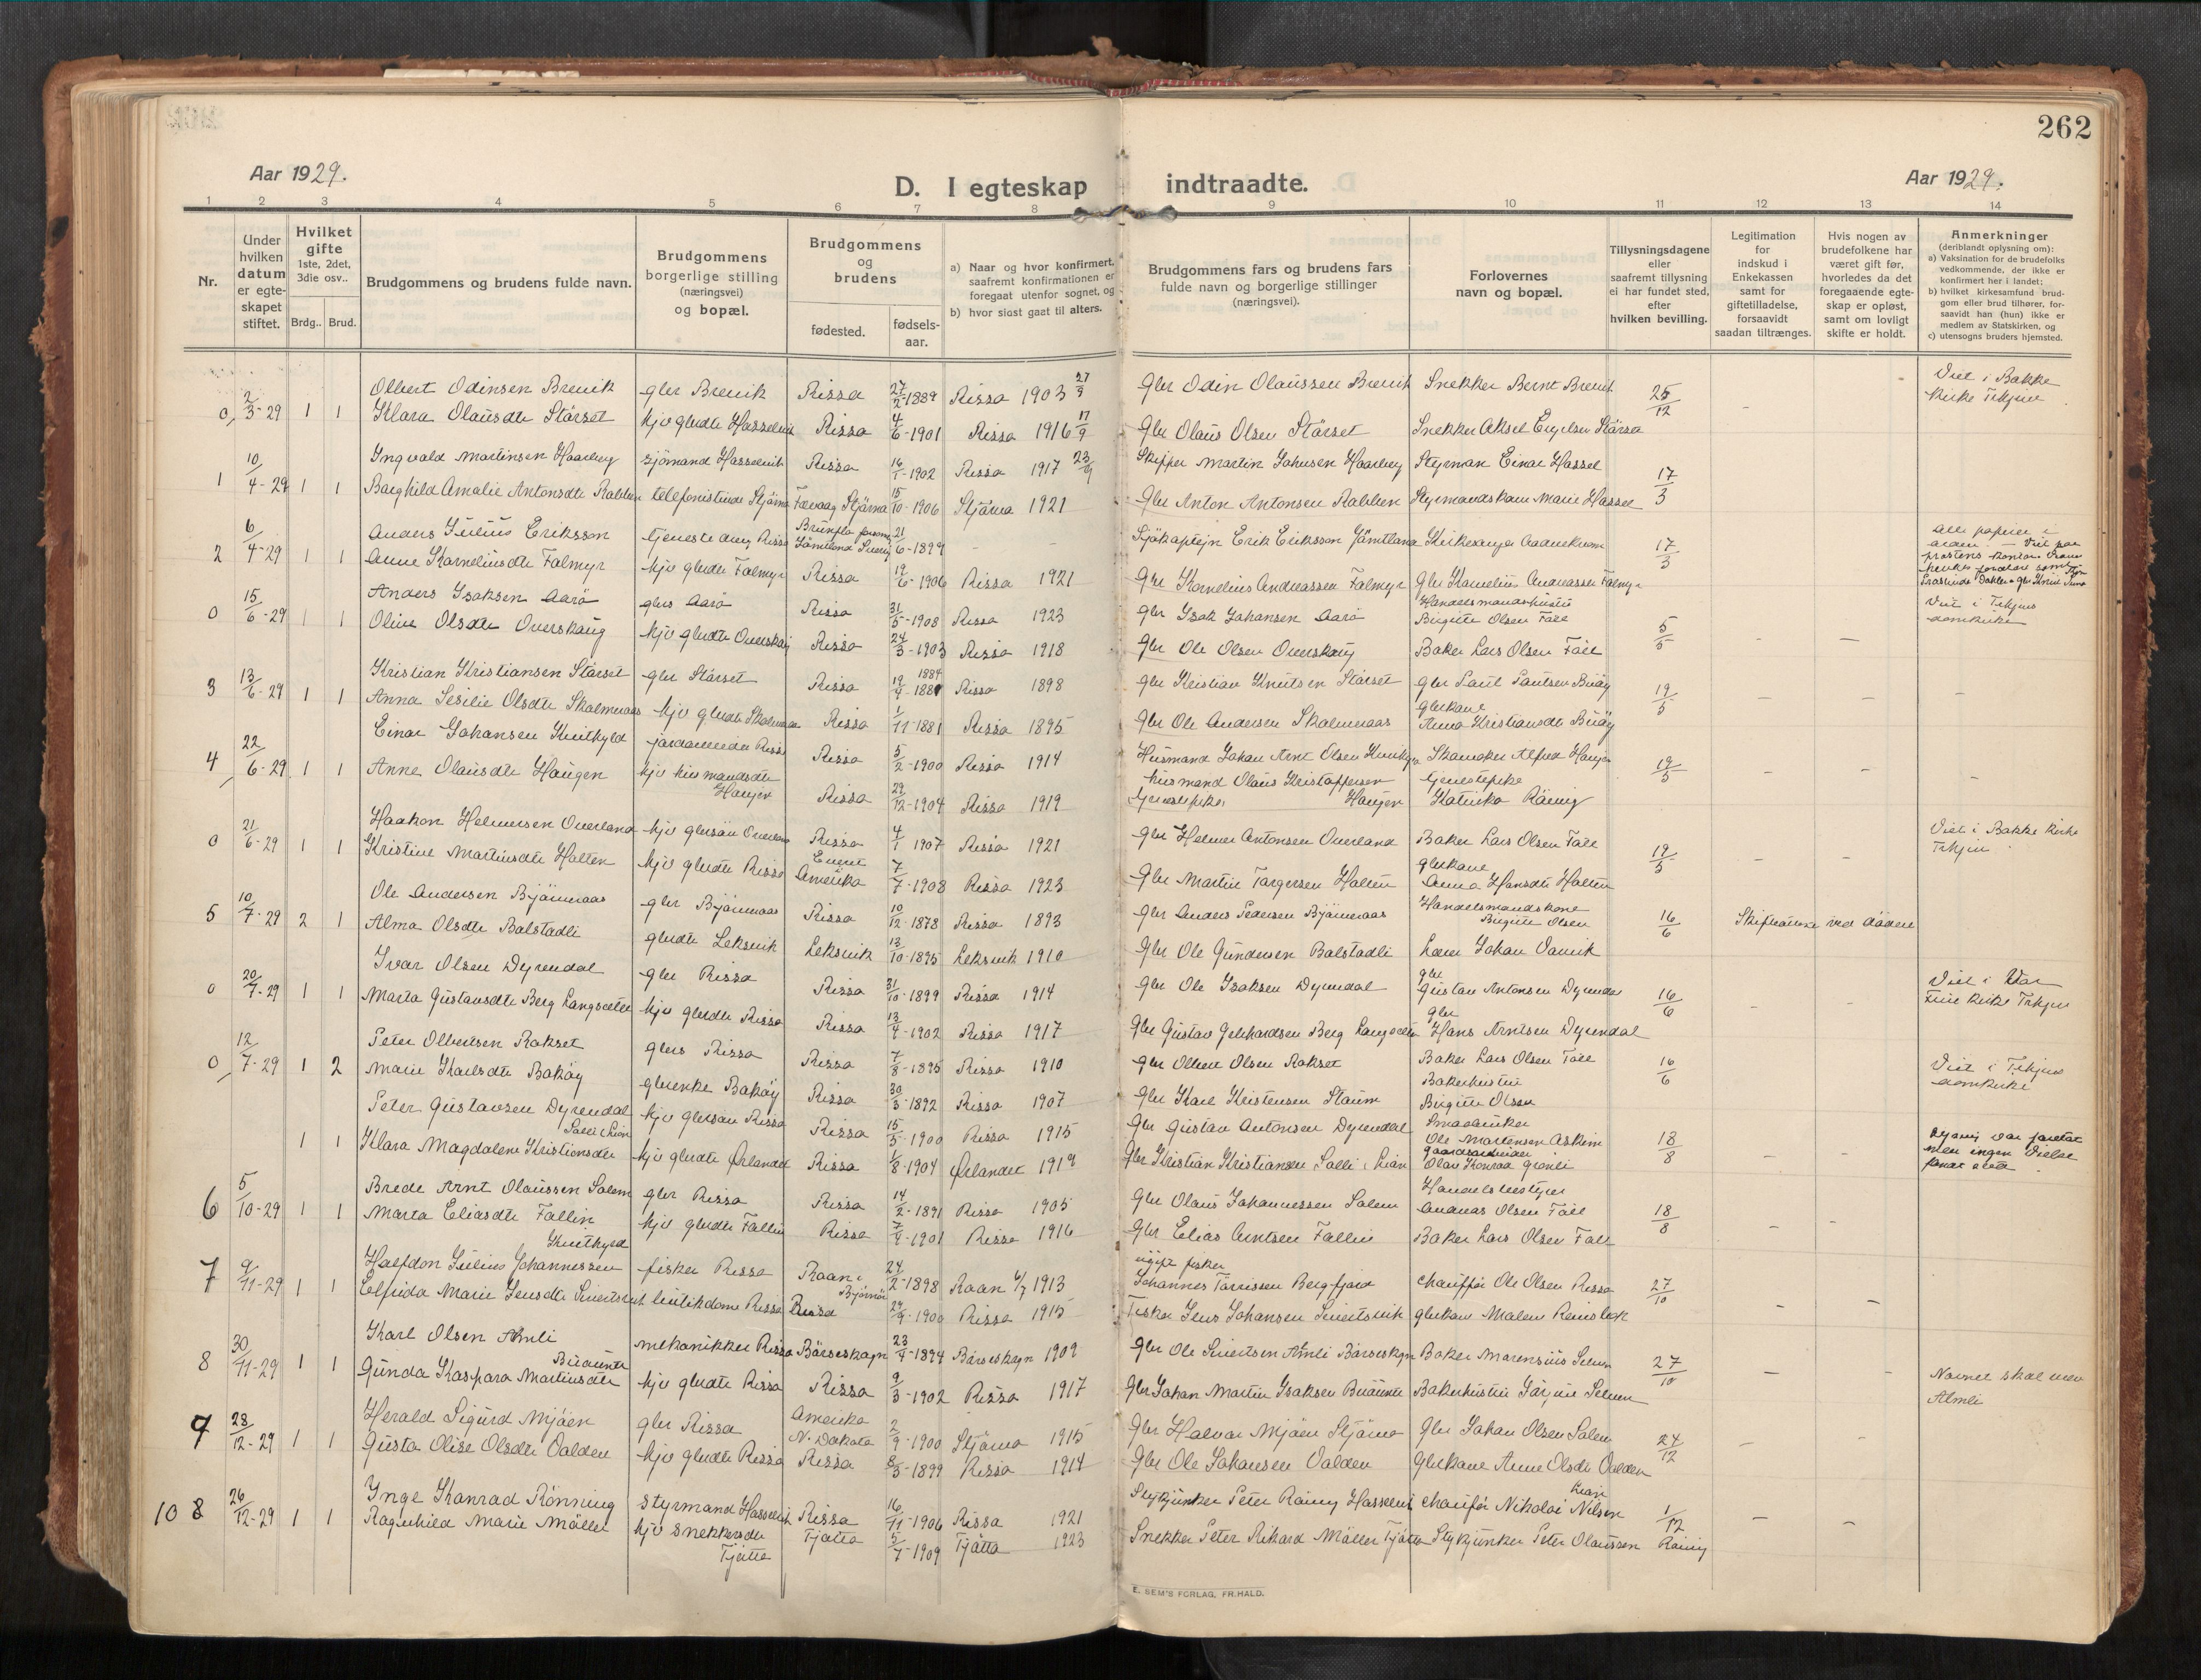 262
Aar 1929.
D. I egteskap indtraadte.
Aar 1929.
1 2 3 4 5 6 7 8 9 10 11 12 13 14
Nr.
Under hvilken datum er egteskapet stiftet.
Hvilket gifte 1ste, 2det, 3die osv..
Brdg.. Brud.
Brudgommens og brudens fulde navn.
Brudgommens borgerlige stilling (næringsvei) og bopæl.
Brudgommens og brudens
fødested.
fødsels-aar.
a) Naar og hvor konfirmert, saafremt konfirmationen er foregaat utenfor sognet, og
b) hvor sidst gaat til alters.
Brudgommens fars og brudens fars fulde navn og borgerlige stillinger (næringsvei).
Forlovernes navn og bopæl.
Tillysningsdagene eller saafremt tillysning ei har fundet sted, efter hvilken bevilling.
Legitimation for indskud i Enkekassen samt for giftetilladelse, forsaavidt saadan tiltrænges.
Hvis nogen av brudefolkene har været gift før, hvorledes da det foregaaende egteskap er opløst, samt om lovligt skifte er holdt.
Anmerkninger (deriblandt oplysning om):
a) Vaksination for de brudefolks vedkommende, der ikke er konfirmert her i landet;
b) hvilket kirkesamfund brudgom eller brud tilhører, forsaavidt han (hun) ikke er medlem av Statskirken, og
c) utensogns bruders hjemsted.
0, 2/3-29 1 1 Olbert Odinsen Brevik gbr Brevik Rissa 27/2-1889 Rissa 1903 27/9 Gbr Odin Olaussen Brevik Snekker Bernt Brevik 25/12 - - Viet i Bakke kirke Trhjem
Klara Olausdtr Stårset hjv gbrdtr Hasselvik Rissa 4/6-1901 Rissa 1916 17/9 Gbr Olaus Olsen Stårset Snekker Aksel Stårset
1 10/4-29 1 1 Ingvald Martinsen Haarberg sjömand Hasselvik Rissa 16/1-1902 Rissa 1917 23/9 Skipper Martin Johnsen Haarberg Styrman Einar Hassel 17/3
Borghild Amalie Antonsdtr Rabben telefonistinde Stjørna Fevaag Stjørna 15/10-1906 Stjørna 1921 Gbr Anton Antonsen Rabben Styrmandskone Marie Hassel
2 6/4-29 1 1 Anders Julius Eriksson tjenestedreng Rissa Brunflo Jämtland Sverig 21/6-1899 - - Sjökaptejn Erik Eriksson Jämtland Kirkesanger 17/3 Alle papirer i orden. Viet paa prestens kontor
Anne Korneliusdtr Falmyr hjv gbrdtr Falmyr Rissa 19/6-1906 Rissa 1921 Gbr Kornelius Andreassen Falmyr Gbr Kornelius Andreassen Falmyr
0 15/6-29 1 1 Anders Isaksen Aarö gbrs Aarö Rissa 31/5-1908 Rissa 1923 Gbr Isak Johansen Aarö Handelsmandshustru Birgitte Olsen Fåll 5/5 - - Viet i Trhjems domkirke
Oline Olsdtr Overskaug hjv gbrdtr Overskaug Rissa 24/3-1903 Rissa 1918 Gbr Ole Olsen Overskaug Baker Lars Olsen Fåll
3 13/6-29 1 1 Kristian Kristiansen Stårset gbr Stårset Rissa 19/4-1884 Rissa 1898 Gbr Kristian Knutsen Stårset Gbr Paul Paulsen Buöy 19/5 - - -
Anna Sesilie Olsdtr Skalmeraas hjv gbrdtr Skalmeraas Rissa 1/11-1881 Rissa 1895 Gbr Ole Andersen Skalmeraas gbrkone Anna Kristiansdtr Buöy
4 22/6-29 1 1 Einar Johansen Kvithyld jordarbeider Rissa Rissa 5/2-1900 Rissa 1914 Husmand Johan Arnt Olsen Kvithyld Skomaker Alfred Haugen 19/5 - - -
Anne Olausdtr Haugen hjv husmandsdtr Haugen Rissa 29/12-1904 Rissa 1919 husmand Olaus Kristoffersen Haugen Tjenestepike Katinka Råning
0 21/6-29 1 1 Haakon Helmersen Overland hjv gbrsön Overland Rissa 4/1 1907 Rissa 1921 Gbr Helmer Antonsen Overland Baker Lars Olsen Fåll 19/5 - - Viet i Bakke kirke Trhjem
Kristine Martinsdtr Holten hjv gbrdtr Rissa Everet Amerika 7/7-1908 Rissa 1923 Gbr Martin Torgersen Holten gbrkone Anna Hansdtr Holten
5 10/7-29 2 1 Ole Andersen Bjørneraas gbr Bjørneraas Rissa 10/12-1878 Rissa 1893 Gbr Anders Pedersen Bjørneraas Handelsmandskone Birgitte Olsen 16/6 Skifteattest ved döden
Alma Olsdtr Balstadli gbrdtr Leksvik Leksvik 13/10-1895 Leksvik 1910 Gbr Ole Gundersen Balstadli Lærer Johan Vanvik
0 20/7-29 1 1 Ivar Olsen Dyrendal gbr Rissa Rissa 31/10-1899 Rissa 1914 Gbr Ole Isaksen Dyrendal gbr Gustav Antonsen Dyrendal 16/6 - - Viet i Vor Frue kirke Trhjem
Marta Gustavsdtr Berg Langsæter hjv gbrdtr Rissa Rissa 13/4-1902 Rissa 1917 Gbr Gustav Gerhardsen Berg Langsæter gbr Hans Arntsen Dyrendal
0 12/7-29 1 2 Peter Olbertsen Rokset gbrs Rissa Rissa 7/8-1895 Rissa 1910 Gbr Olbert Olsen Rokset Baker Lars Olsen Fåll 16/6 Viet i Trhjems domkirke
Marie Karlsdtr Bakøy gbrenke Bakøy Rissa 30/3-1892 Rissa 1907 Gbr Karl Kristensen Staum Bakerhustru Birgitte Olsen
1 1 Peter Gustavsen Dyrendal hjv gbrsön Rissa Rissa 15/5-1900 Rissa 1915 Gbr Gustav Antonsen Dyrendal Smaabruker Ole Martensen Askim 18/8 Lysning var foretat men ingen vielse fandt sted.
Klara Magdalene Kristiansdtr Salli i Lian hjv gbrdtr Ørlandet Rissa 1/8-1904 Ørlandet 1919 Gbr Kristian Kristiansen Salli i Lian gaardsarbeider Olav Konrad Grønli
6 5/10-29 1 1 Brede Arnt Olaussen Solem gbr Rissa Rissa 14/2-1891 Rissa 1905 Gbr Olaus Johannessen Solem Handelsbestyrer Andreas Olsen Fåll 18/8 - -
Marta Eliasdtr Fallin hjv gbrdtr Fallin Rissa 7/4-1901 Rissa 1916 Gbr Elias Arntsen Fallin Baker Lars Olsen Fåll
7 9/11-29 1 1 Halfdon Julius Johannessen Kvithyld fisker Rissa Roan i Bjørnør 24/2-1898 Roan 6/7 1913 ugift fisker Johannes Tørrissen Bergfjord Chauffør Ole Olsen Rissa 27/10 - -
Elfrida Marie Jensdtr Sivertsvik butikdame Rissa Rissa 29/4-1900 Rissa 1915 Fisker Jens Johansen Sivertsvik gbrkone Malene Reinslek
8 30/11-29 1 1 Karl Olsen Amli mekanikker Rissa Børseskogn 23/4-1894 Børseskogn 1909 Gbr Ole Sivertsen Amli Børseskogn Baker Marensius Selven 27/10 - - Navnet skal være Almli
Gunda Kaspara Martinsdtr Buaunet hjv gbrdtr Rissa Rissa 9/3-1902 Rissa 1917 Gbr Johan Martin Isaksen Buaunet Bakerhustru Jørgine Selven
9 28/12-29 1 1 Herald Sigurd Mjøen gbr Rissa Amerika N. Dakota 2/9-1900 Stjørna 1915 Gbr Halvor Mjøen Stjørna Gbr Johan Olsen Solem 24/12 - -
Gusta Olise Olsdtr Valden hjv gbrdtr Rissa Rissa 8/3-1899 Rissa 1914 Gbr Ole Johansen Valden Gbrkone Anne Olsdtr Valden
10 8 26/12-29 1 1 Ynge Konrad Rønning styrmand Hasselvik Rissa 16/11-1906 Rissa 1921 Stykjunker Peter Röning Hasselvik Chauför Nikolai Nilsen Lian 1/12 - - -
Ragnhild Marie Møller hjv snekkersdtr Tjøtta Tjøtta 5/7-1909 Tjøtta 1923 Snekker Peter Rikard Møller Tjøtta Stykjunker Peter Olaussen Röning
E. SEM'S FORLAG, FR.HALD.